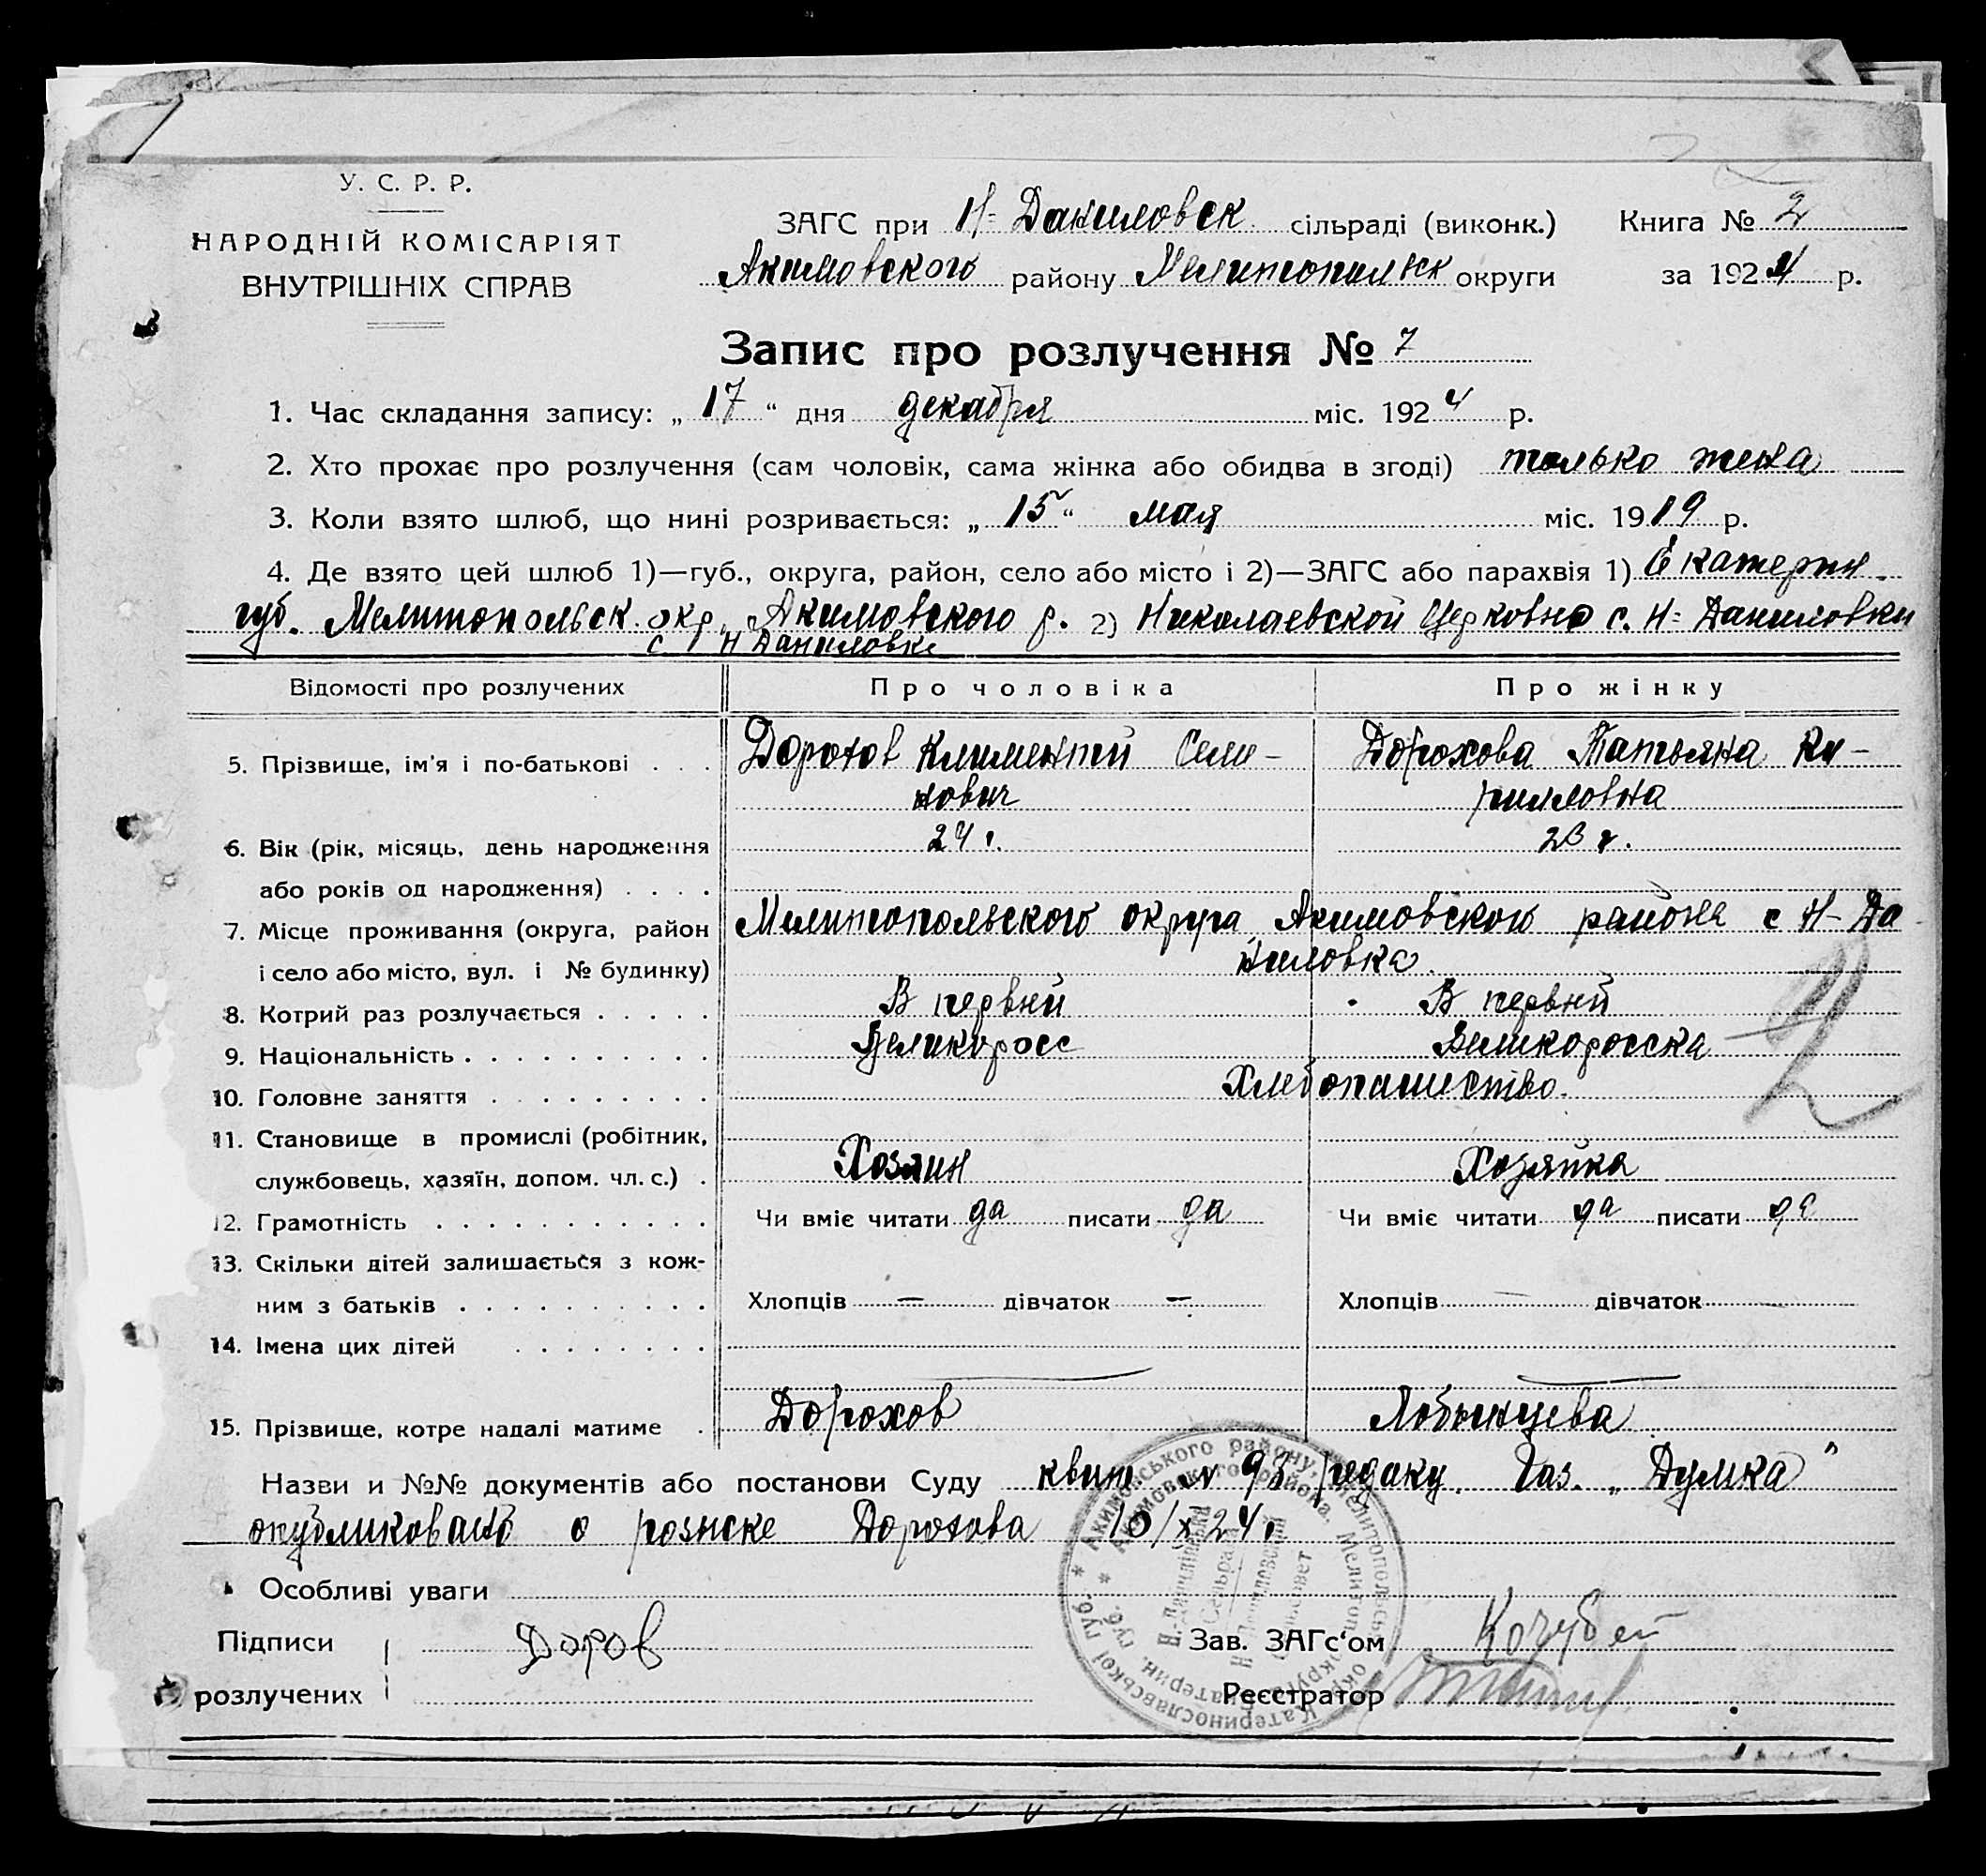 У. С. Р. Р.
НАРОДНІЙ КОМІСАРІЯТ
ВНУТРІШНІХ СПРАВ
ЗАГС при Н-Даниловск сільраді (виконк.)
Акимовского району Мелитопольск округи
Книга № 2
за 1924 р.
Запис про розлучення № 7
1. Час складання запису: „17“ дня декабря міс. 1924 р.
2. Хто прохає про розлучення (сам чоловік, сама жінка або обидва в згоді) только жена
3. Коли взято шлюб, що нині розривається: „15“ мая міс. 1919 р.
4. Де взято цей шлюб 1)—губ., округа, район, село або місто і 2)—ЗАГС або парахвія 1) Екатерин.
губ. Мелитопольск. окр., Акимовского р. 2) Николаевской Церковью с. Н-Даниловки
с Н Даниловке
Відомості про розлучених Про чоловіка Про жінку
5. Прізвище, ім'я і по-батькові . . . Дорохов Климентий Семе- Дорохова Татьяна Ки-
нович рилловна
6. Вік (рік, місяць, день народження 24 г. 23 г.
або років од народження) . . . .
7. Місце проживання (округа, район Мелитопольского округа, Акимовского района с Н-Да
і село або місто, вул. і № будинку) ниловка.
8. Котрий раз розлучається . . . . . В первый В первый
9. Національність . . . . . . . . . . Великоросс Великоросска
10. Головне заняття . . . . . . . . . Хлебопашество.
11. Становище в промислі (робітник,
службовець, хазяїн, допом. чл. с.) . Хозяин Хозяйка
12. Грамотність . . . . . . . . . . . Чи вміє читати да писати да Чи вміє читати да писати да
13. Скільки дітей залишається з кож-
ним з батьків . . . . . . . . . . Хлопців — дівчаток — Хлопців — дівчаток —
14. Імена цих дітей . . . . . . . .
15. Прізвище, котре надалі матиме . Дорохов Лобынцева
Назви и №№ документів або постанови Суду квит 93 редакц. Газ. „Думка”
опубликовано о розыске Дорохова 10/X 24 г.
Особливі уваги
Підписи Доров Зав. ЗАГс‘ом Кочубей
розлучених Реєстратор
2
* Акимівського району, Мелітопольської округи Катеринославської губ.
* Акимовского района, Мелитоп. округа Екатерин. губ.
Н.-Данилівська
Сельрада
Н Даниловский
Сельсовет